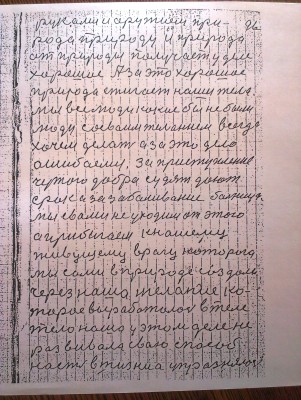 руками и оружием при- 96
рода природу и природа
от природы получает у деле
хорошее А за это хорошее
природа стигает наши тела
мы все люди какие бы не были
люди со своим желанием всегда
хочем делат а за это дело
ошибаемс, за приступление
чужого добра судят дают
срок а за забаливание больница
мы с вами не уходим от этого
а прибигаем к нашему
живущему врагу которого
мы сами в природе создали
через наша желание ко-
торое выработалос в теле
тело наша у этом деле не
развивала сваю способ
ность в жизни а упражнял